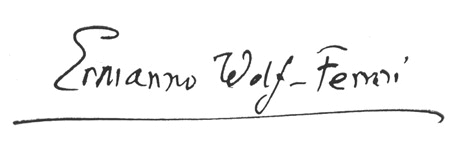 Ermanno Wolf-Ferrari